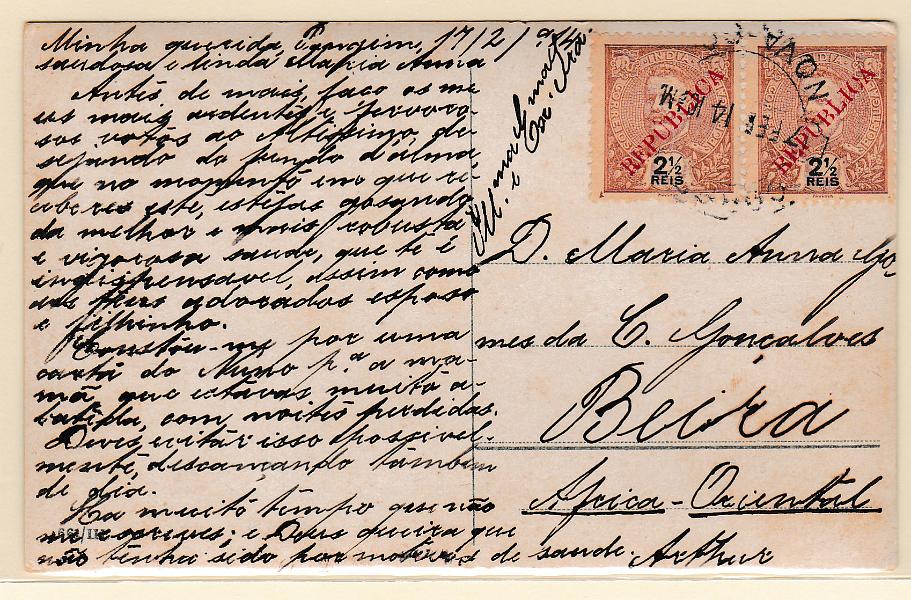 Minha querida, Pangim, 17/2/914.
saudosa e linda Maria Anna
Antes de mais, faço os me
us mais ardentes e fervoro
sos votos ao Altissimo, de
sejando do fundo d'alma
que no momento em que re
ceberes este, estejas gosando
da melhor e mais robusta
e vigorosa saude, que te é
indispensavel, assim como
aos teus adorados esposo
e filhinho.
Constou-me por uma
carta do Nuno pª a ma-
mã, que estavas muito a-
batida, com noites perdidas.
Deves evitar isso possivel-
mente, descançando tambem
de dia.
Ha muito tempo que não
me escreves; e Deus queira que
não tenha sido por motivos de saude. Arthur
Ill.ma Ema
e
D. Maria Anna Go
mes da C. Gonçalves
Beira
Africa-Oriental
INDIA
REPUBLICA
2½
REIS
INDIA
REPUBLICA
2½
REIS
NOVA
17 FEB 14